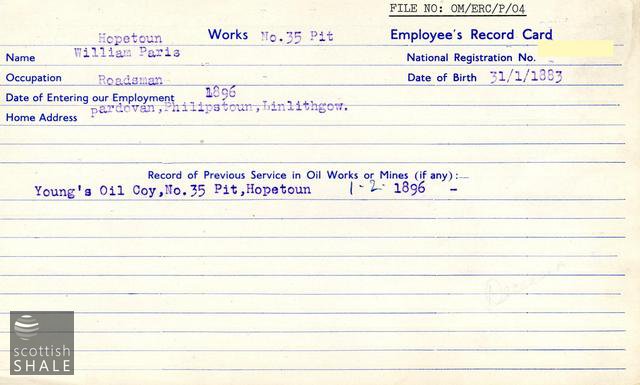 FILE NO: OM/ERC/P/04
Hopetoun Works No.35 Pit Employee's Record Card
Name William Paris National Registration No.
Occupation Roadsman Date of Birth 31/1/1883
Date of Entering our Employment 1896
Home Address pardovan,Philipstoun,Linlithgow.
Record of Previous Service in Oil Works or Mines (if any):—
Young's Oil Coy,No.35 Pit,Hopetoun 1-2- 1896 -
scottish
SHALE